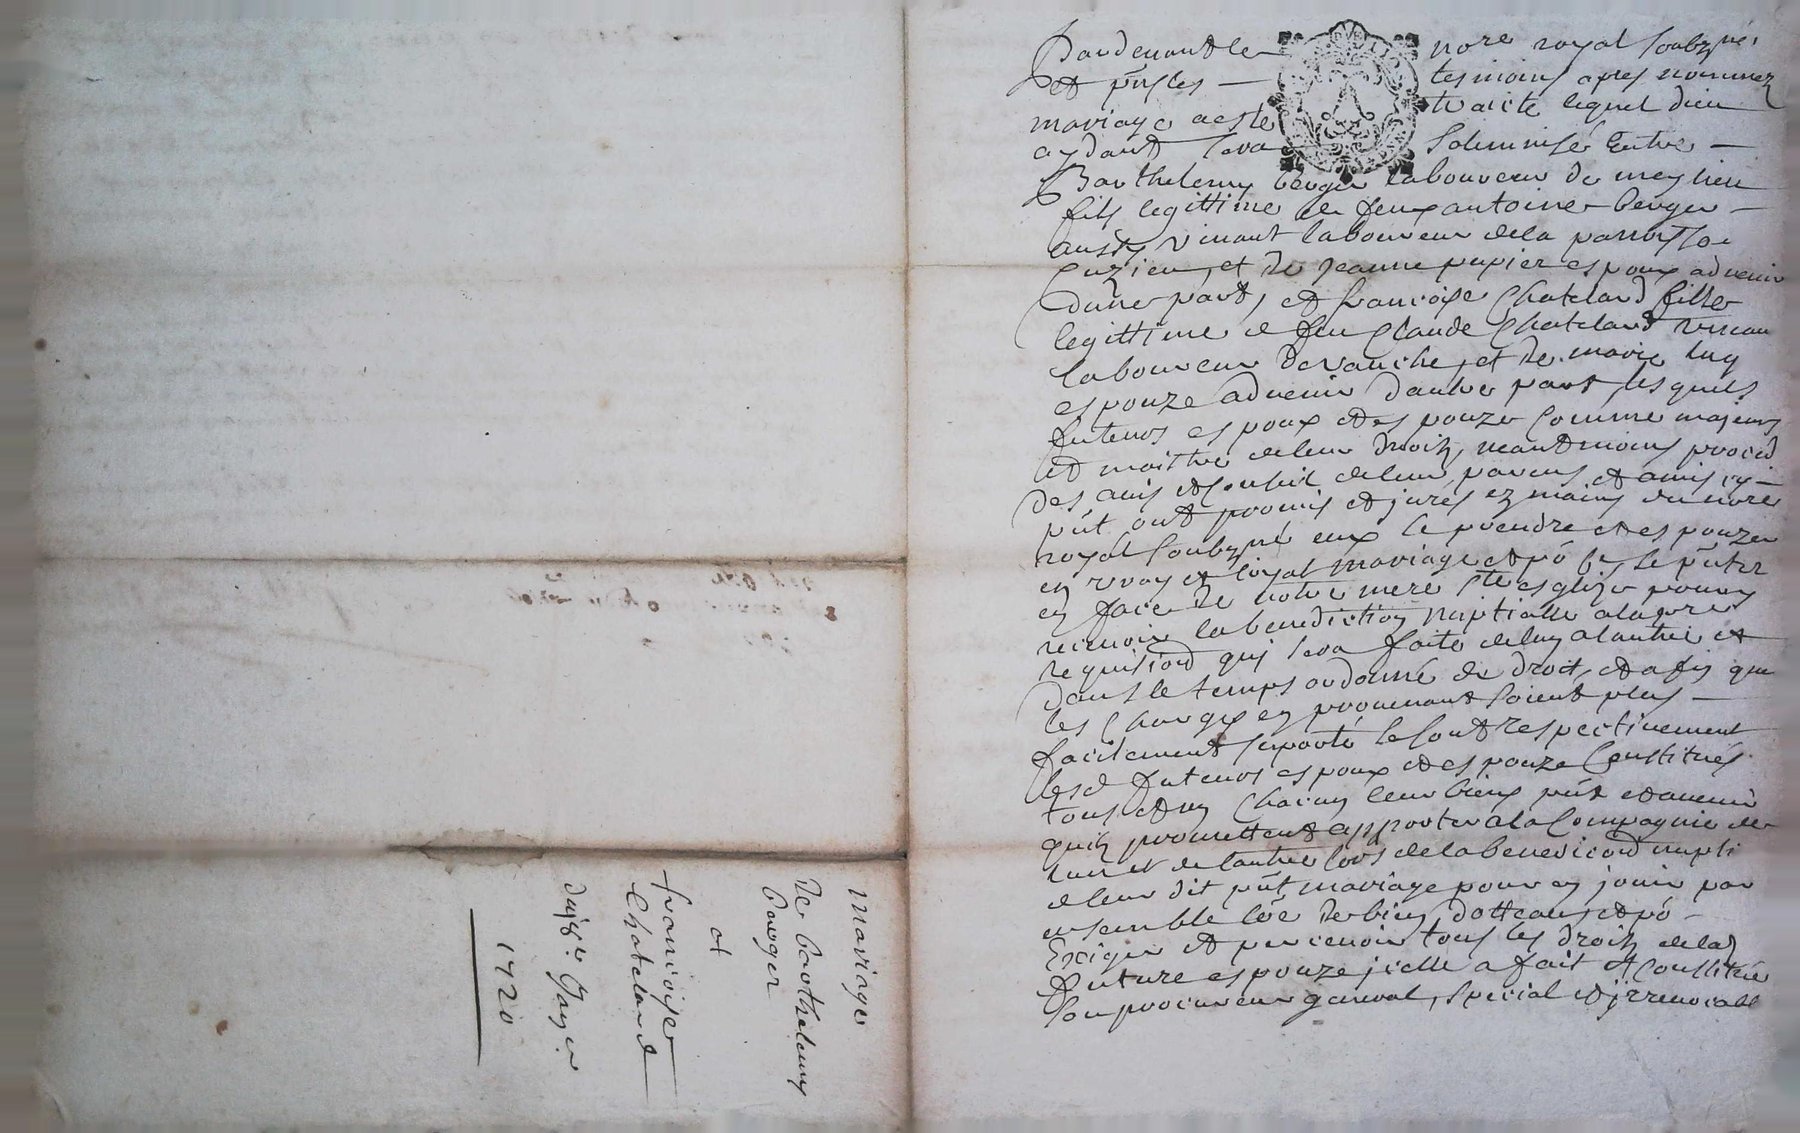 Pardevant le nore royal soubzné
et pnsts tesmoins apres nommez
mariage a esté traicte lequel dieu
aydant sera solemnisé Entre
Barthelemy berger laboureur de meylieu
fils legittime de feux antoine berger
aussy vivant laboureur de la parroisse
Cuzieu, et de Jeanne papier espoux advenir
dune part, et francoise Chatelard fille
legittime de feu Claude Chatelard vivan
laboureur de vauche, et de marie luy
espouze advenir dautre part, lesquels
futeurs espoux et espouze Comme majeurs
et maitre de leur droitz, neantmoins proced
des avis et conseil de leur parens et amis cy
pnt ont promis et jurés ez mains du nore
royal soubzné eux se prendre et espouzer
en vray et loyal mariage et po se pnter
en face de notre mere Ste esglize pour y
recevoir la benediction nuptialle a la pre
requision qui sera faite de luy a lautre et
dans le temps ordonné de droit, et afin que
les Charges en provenant soient plus
facilement suporté se sont respectivement
lesd futeurs espoux et espouze Constitués
tous et un Chacun leur biens pnt et avenir
quilz promettent apporter a la Compagnie de
lun et de lautre lors de la benediction nupti
de leur dit pnt mariage pour en jouir par
ensemble de biens dottaux et po
Exiger et percevoir tous les droitz de lad
future espouze jcelle a fait et Constitué
son procureur general, special et jrrevocabl
mariage
de barthelemy
berger
et
francoise
Chatelard
du
1720